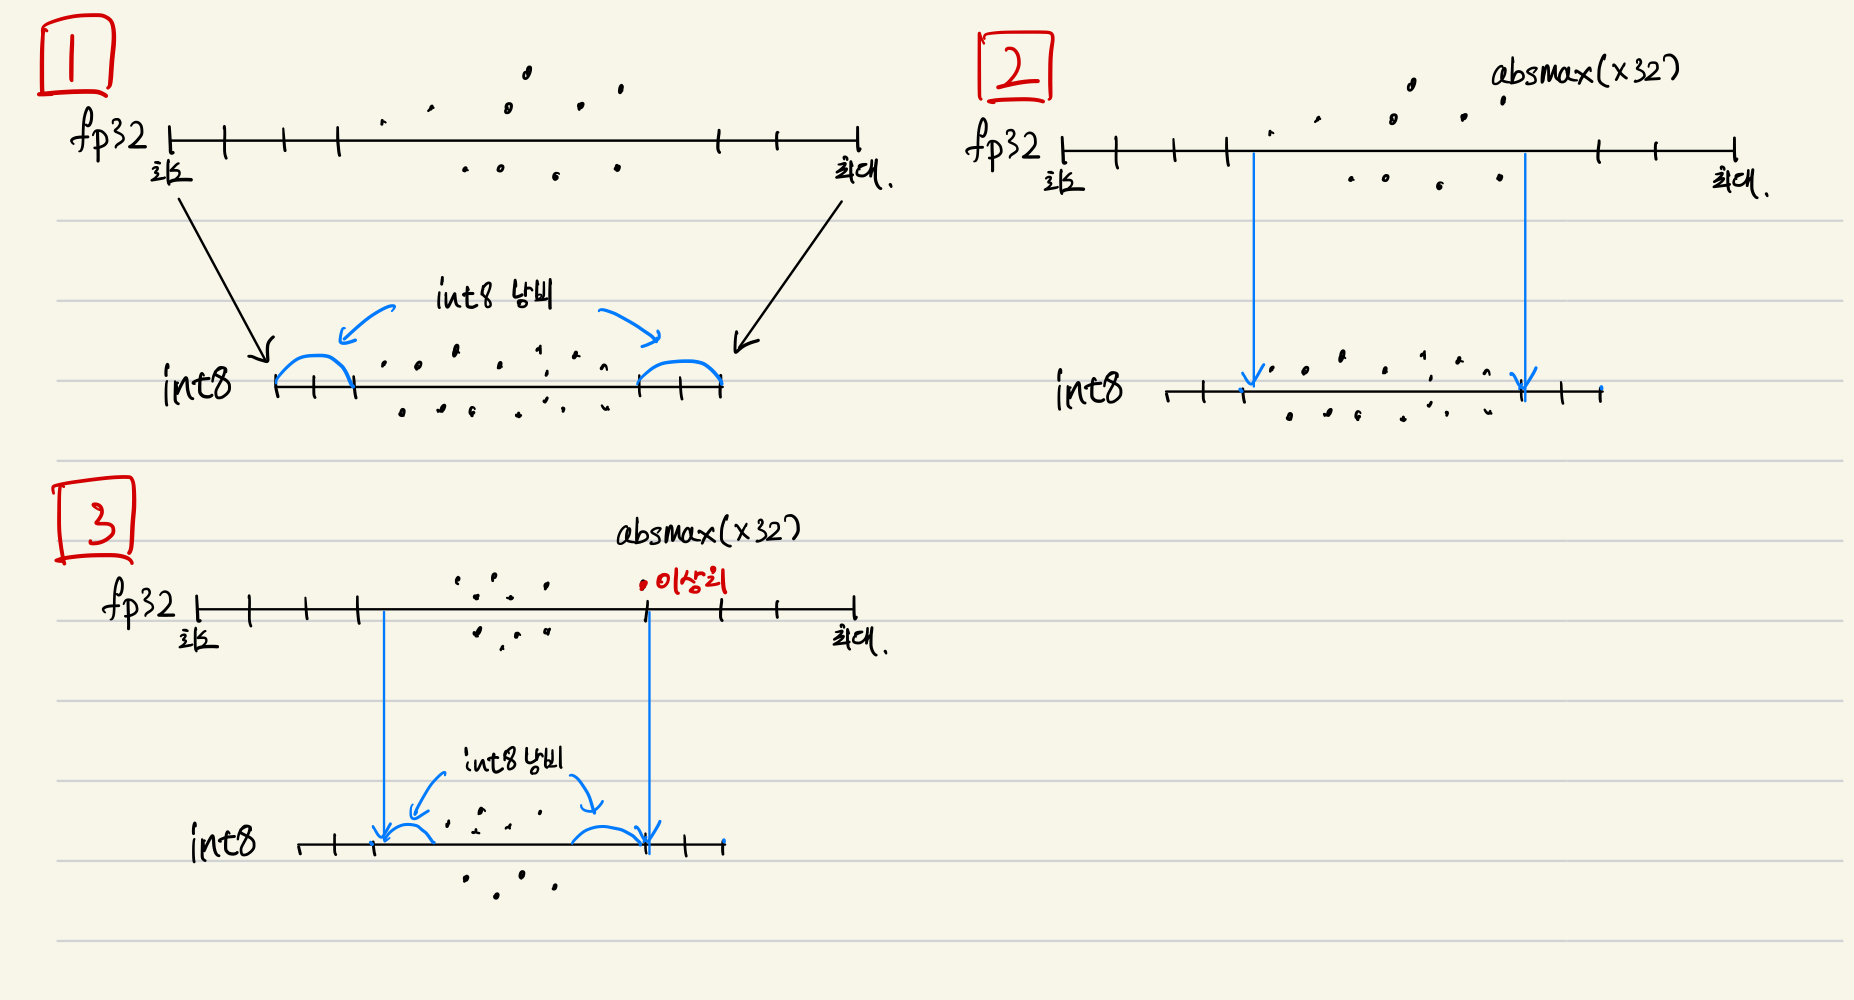 1
fp32
최소
최대.
int8 낭비
int8
2
absmax(x32)
fp32
최소
최대.
int8
3
absmax(x32)
이상치
fp32
최소
최대.
int8 낭비
int8